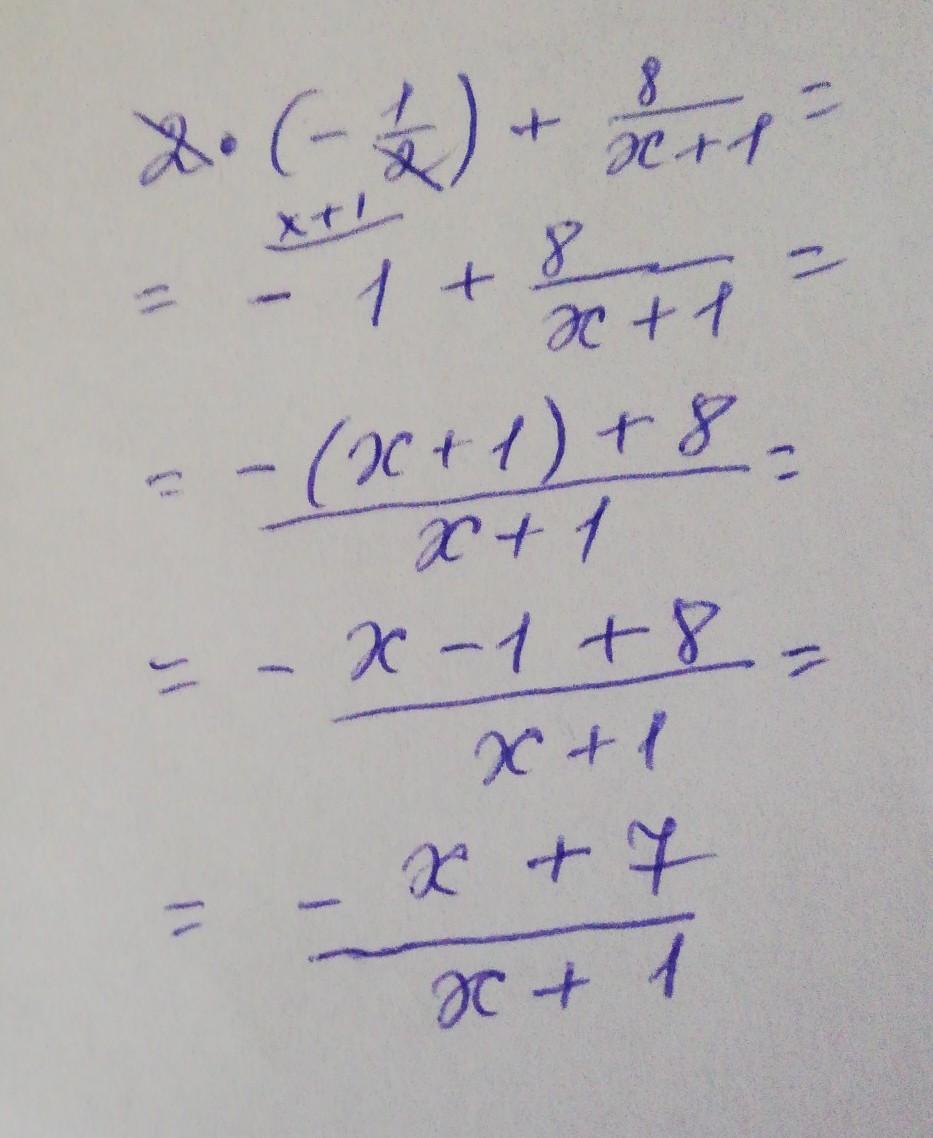 2 · (- 1/2) + 8/(x+1) =
x+1
= - 1 + 8/(x+1) =
= (-(x+1)+8)/(x+1) =
= - (x-1+8)/(x+1) =
= (-x+7)/(x+1)